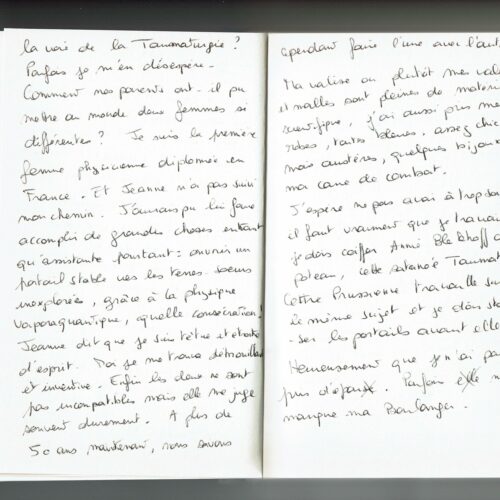 la voie de la Taumaturgie ?
Parfois je m'en désespère.
Comment nos parents ont-il pu
mettre au monde deux femmes si
différentes ? Je suis la première
femme physicienne diplomée en
France. Et Jeanne n'a pas suivi
mon chemin. J'aurais pu lui faire
accomplir de grandes choses en tant
qu'assistante pourtant : ouvrir un
portail stable vers les terres soeurs
inexplorées, grâce à la physique
vaporaquantique, quelle consécration !
Jeanne dit que je suis têtue et étroite
d'esprit. Moi je me trouve débrouillarde
et inventive. Enfin les deux ne sont
pas incompatibles mais elle me juge
souvent durement. A plus de
50 ans, maintenant, nous savons
cependant faire l'une avec l'aut
Ma valise ou plutôt mes val
et malles sont pleines de matéri
scientifique, j'ai aussi pris me
robes, toutes bleues, assez chic
mais austères, quelques bijoux
ma cane de combat.
J'espère ne pas avoir à trop
il faut vraiment que je trava
je dois coiffer Anna au
poteau, cette satanée Taumat
Cette Prussienne travaille su
le même sujet et je dois sta
-ser les portails avant elle
Heureusement que je n'ai pa
pris d'époux. Parfois n
manque ma Boulanger.